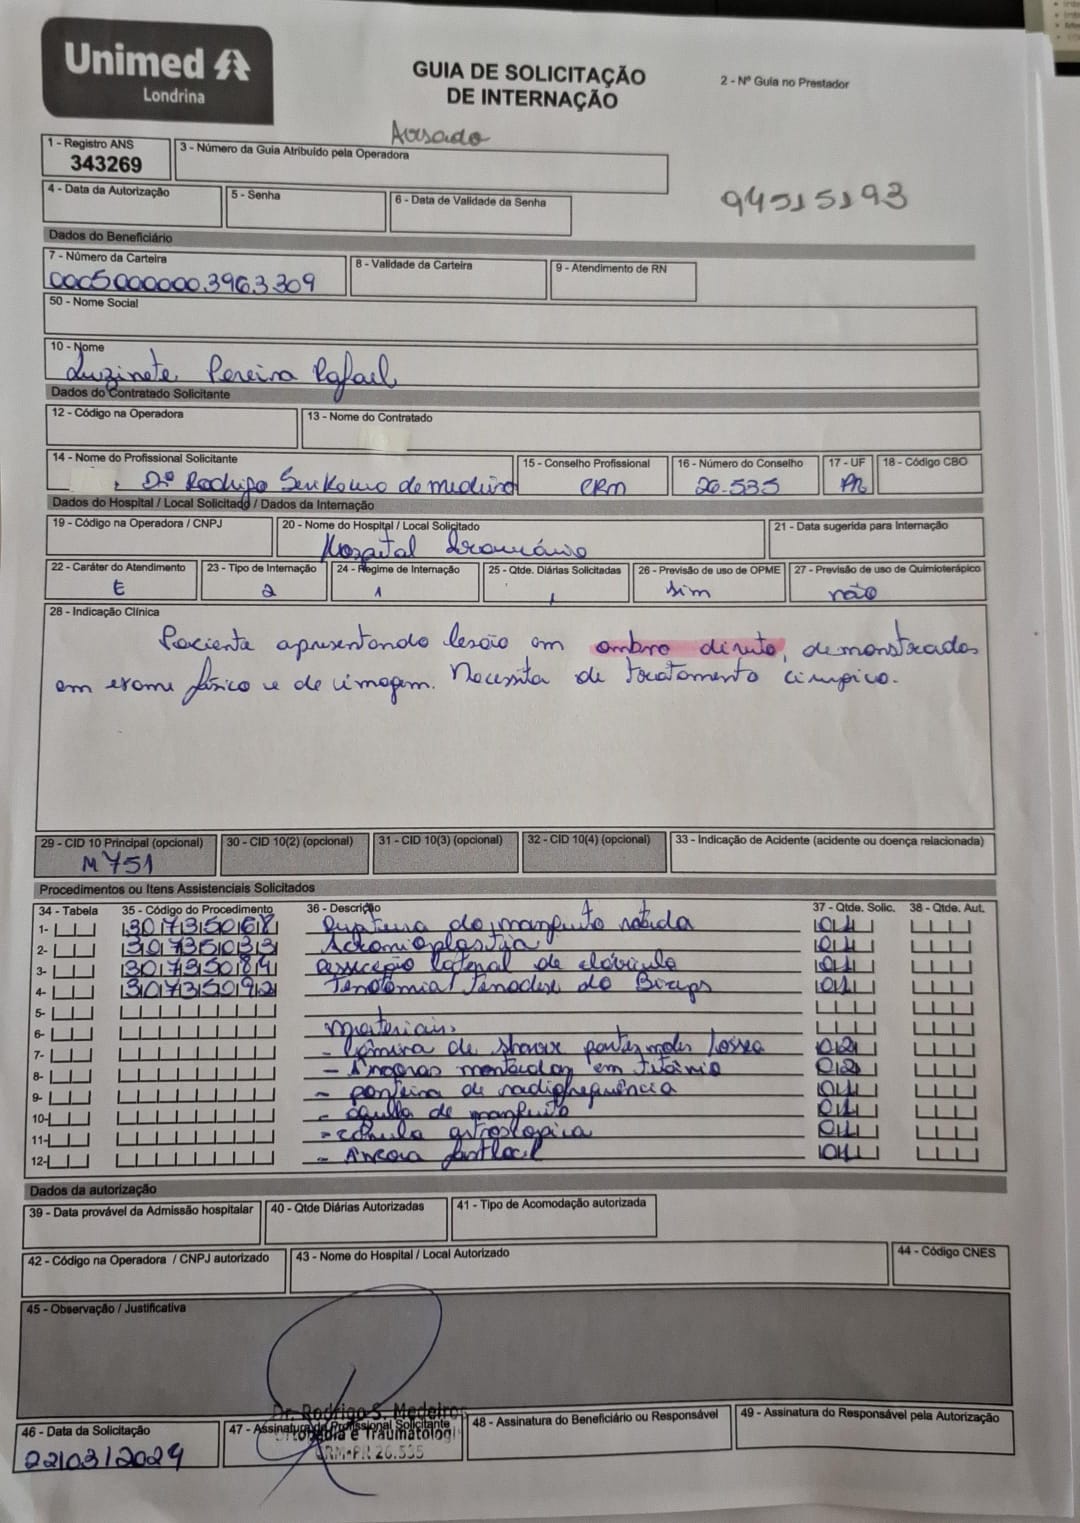 Unimed
Londrina
GUIA DE SOLICITAÇÃO
DE INTERNAÇÃO
2 - Nº Guia no Prestador
1 - Registro ANS
343269
3 - Número da Guia Atribuído pela Operadora
4 - Data da Autorização
5 - Senha
6 - Data de Validade da Senha
94515193
Dados do Beneficiário
7 - Número da Carteira
8 - Validade da Carteira
9 - Atendimento de RN
50 - Nome Social
10 - Nome
Luzinete Pereira Rafael
Dados do Contratado Solicitante
12 - Código na Operadora
13 - Nome do Contratado
14 - Nome do Profissional Solicitante
15 - Conselho Profissional
16 - Número do Conselho
17 - UF
18 - Código CBO
Drº Rodrigo de medeiros
CRM
26.535
PR
Dados do Hospital / Local Solicitado / Dados da Internação
19 - Código na Operadora / CNPJ
20 - Nome do Hospital / Local Solicitado
21 - Data sugerida para Internação
Hospital
22 - Caráter do Atendimento
23 - Tipo de Internação
24 - Regime de Internação
25 - Qtde. Diárias Solicitadas
26 - Previsão de uso de OPME
27 - Previsão de uso de Quimioterápico
E
2
1
1
sim
não
28 - Indicação Clínica
Paciente apresentando lesão em ombro direito, demonstrados
em exame físico e de imagem. Necessita de tratamento cirúrgico.
29 - CID 10 Principal (opcional)
30 - CID 10(2) (opcional)
31 - CID 10(3) (opcional)
32 - CID 10(4) (opcional)
33 - Indicação de Acidente (acidente ou doença relacionada)
M751
Procedimentos ou Itens Assistenciais Solicitados
34 - Tabela
35 - Código do Procedimento
36 - Descrição
37 - Qtde. Solic.
38 - Qtde. Aut.
1- 30735068 Ruptura do manguito rotador 01
2- 30735033 Acromioplastia 01
3- 30735084 Ressecção lateral de clavícula 01
4- 30735092 Tenotomia/Tenodese do Biceps 01
5-
6- Materiais.
7- - Lâmina de shaver partes moles / ossea 02
8- - Âncoras montadas em titânio 02
9- - ponteira de radiofrequência 01
10- - agulha de manguito 01
11- - cânula artroscopica 01
12- - Âncora 01
Dados da autorização
39 - Data provável da Admissão hospitalar
40 - Qtde Diárias Autorizadas
41 - Tipo de Acomodação autorizada
42 - Código na Operadora / CNPJ autorizado
43 - Nome do Hospital / Local Autorizado
44 - Código CNES
45 - Observação / Justificativa
Dr. Rodrigo S. Medeiros
46 - Data da Solicitação
47 - Assinatura do Profissional Solicitante
48 - Assinatura do Beneficiário ou Responsável
49 - Assinatura do Responsável pela Autorização
Ortopedia e Traumatologi
CRM-PR 26.535
22/03/2024